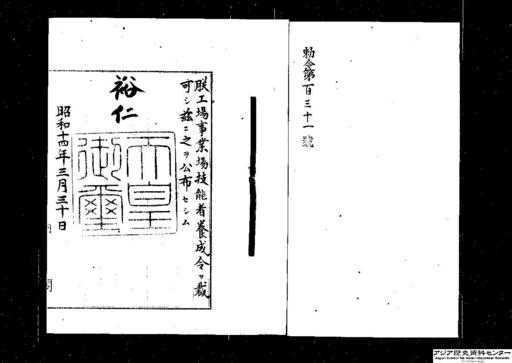 勅令第百三十一號
朕工場事業場技能者養成令ヲ裁
可シ茲ニ之ヲ公布セシム
裕仁
天皇
御璽
昭和十四年三月三十日
内
閣
アジア歴史資料センター
Japan Center for Asian Historical Records